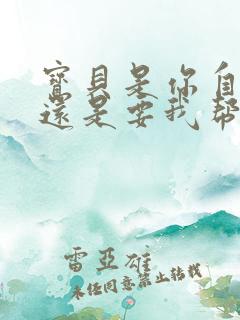 寶貝是你自
還是要我幫
雷亞雄
未經同意禁止轉載